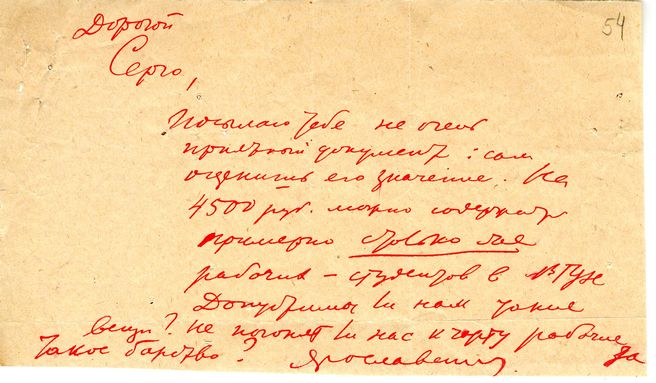 54
Дорогой
Серго,
Посылаю тебе не очень
приятный документ: сам
оценишь его значение. На
4500 руб. можно содержать
примерно столько же
рабочих – студентов в ВТУЗе
Допустимы ли нам такие
вещи? Не погонят ли нас к чорту рабочие за
такое барство? Ярославский